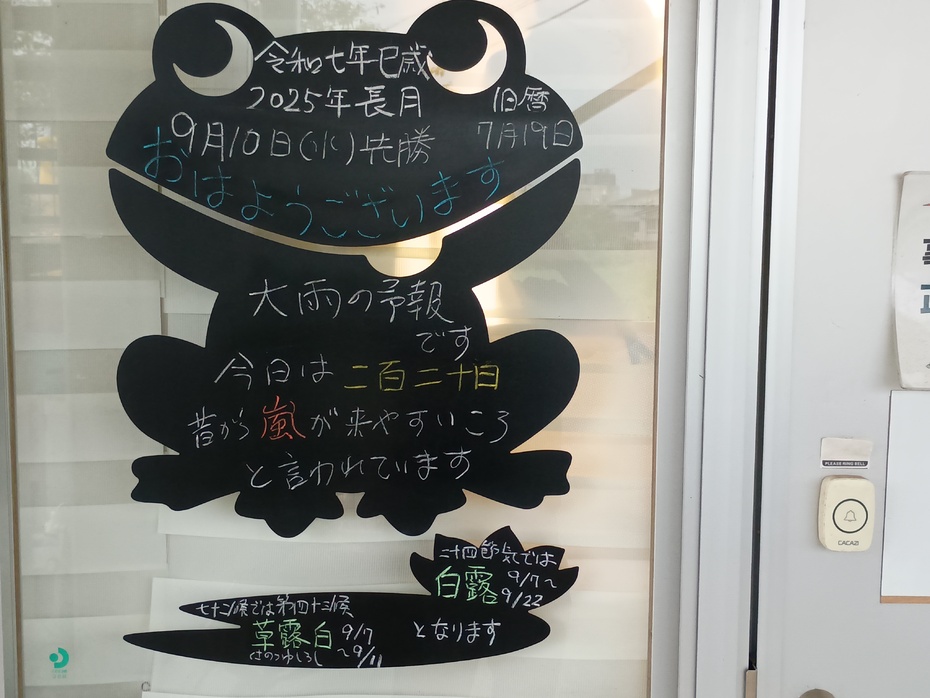 令和七年巳歳
2025年長月
旧暦
7月19日
9月10日(水)先勝
おはようございます
大雨の予報
です
今日は二百二十日
昔から嵐が来やすいころ
と言われています
二十四節気では
白露 9/7〜
9/22
となります
七十二候では第四十三候
草露白 9/7
〜9/11
くさのつゆしろし
PLEASE RING BELL
CACAZI